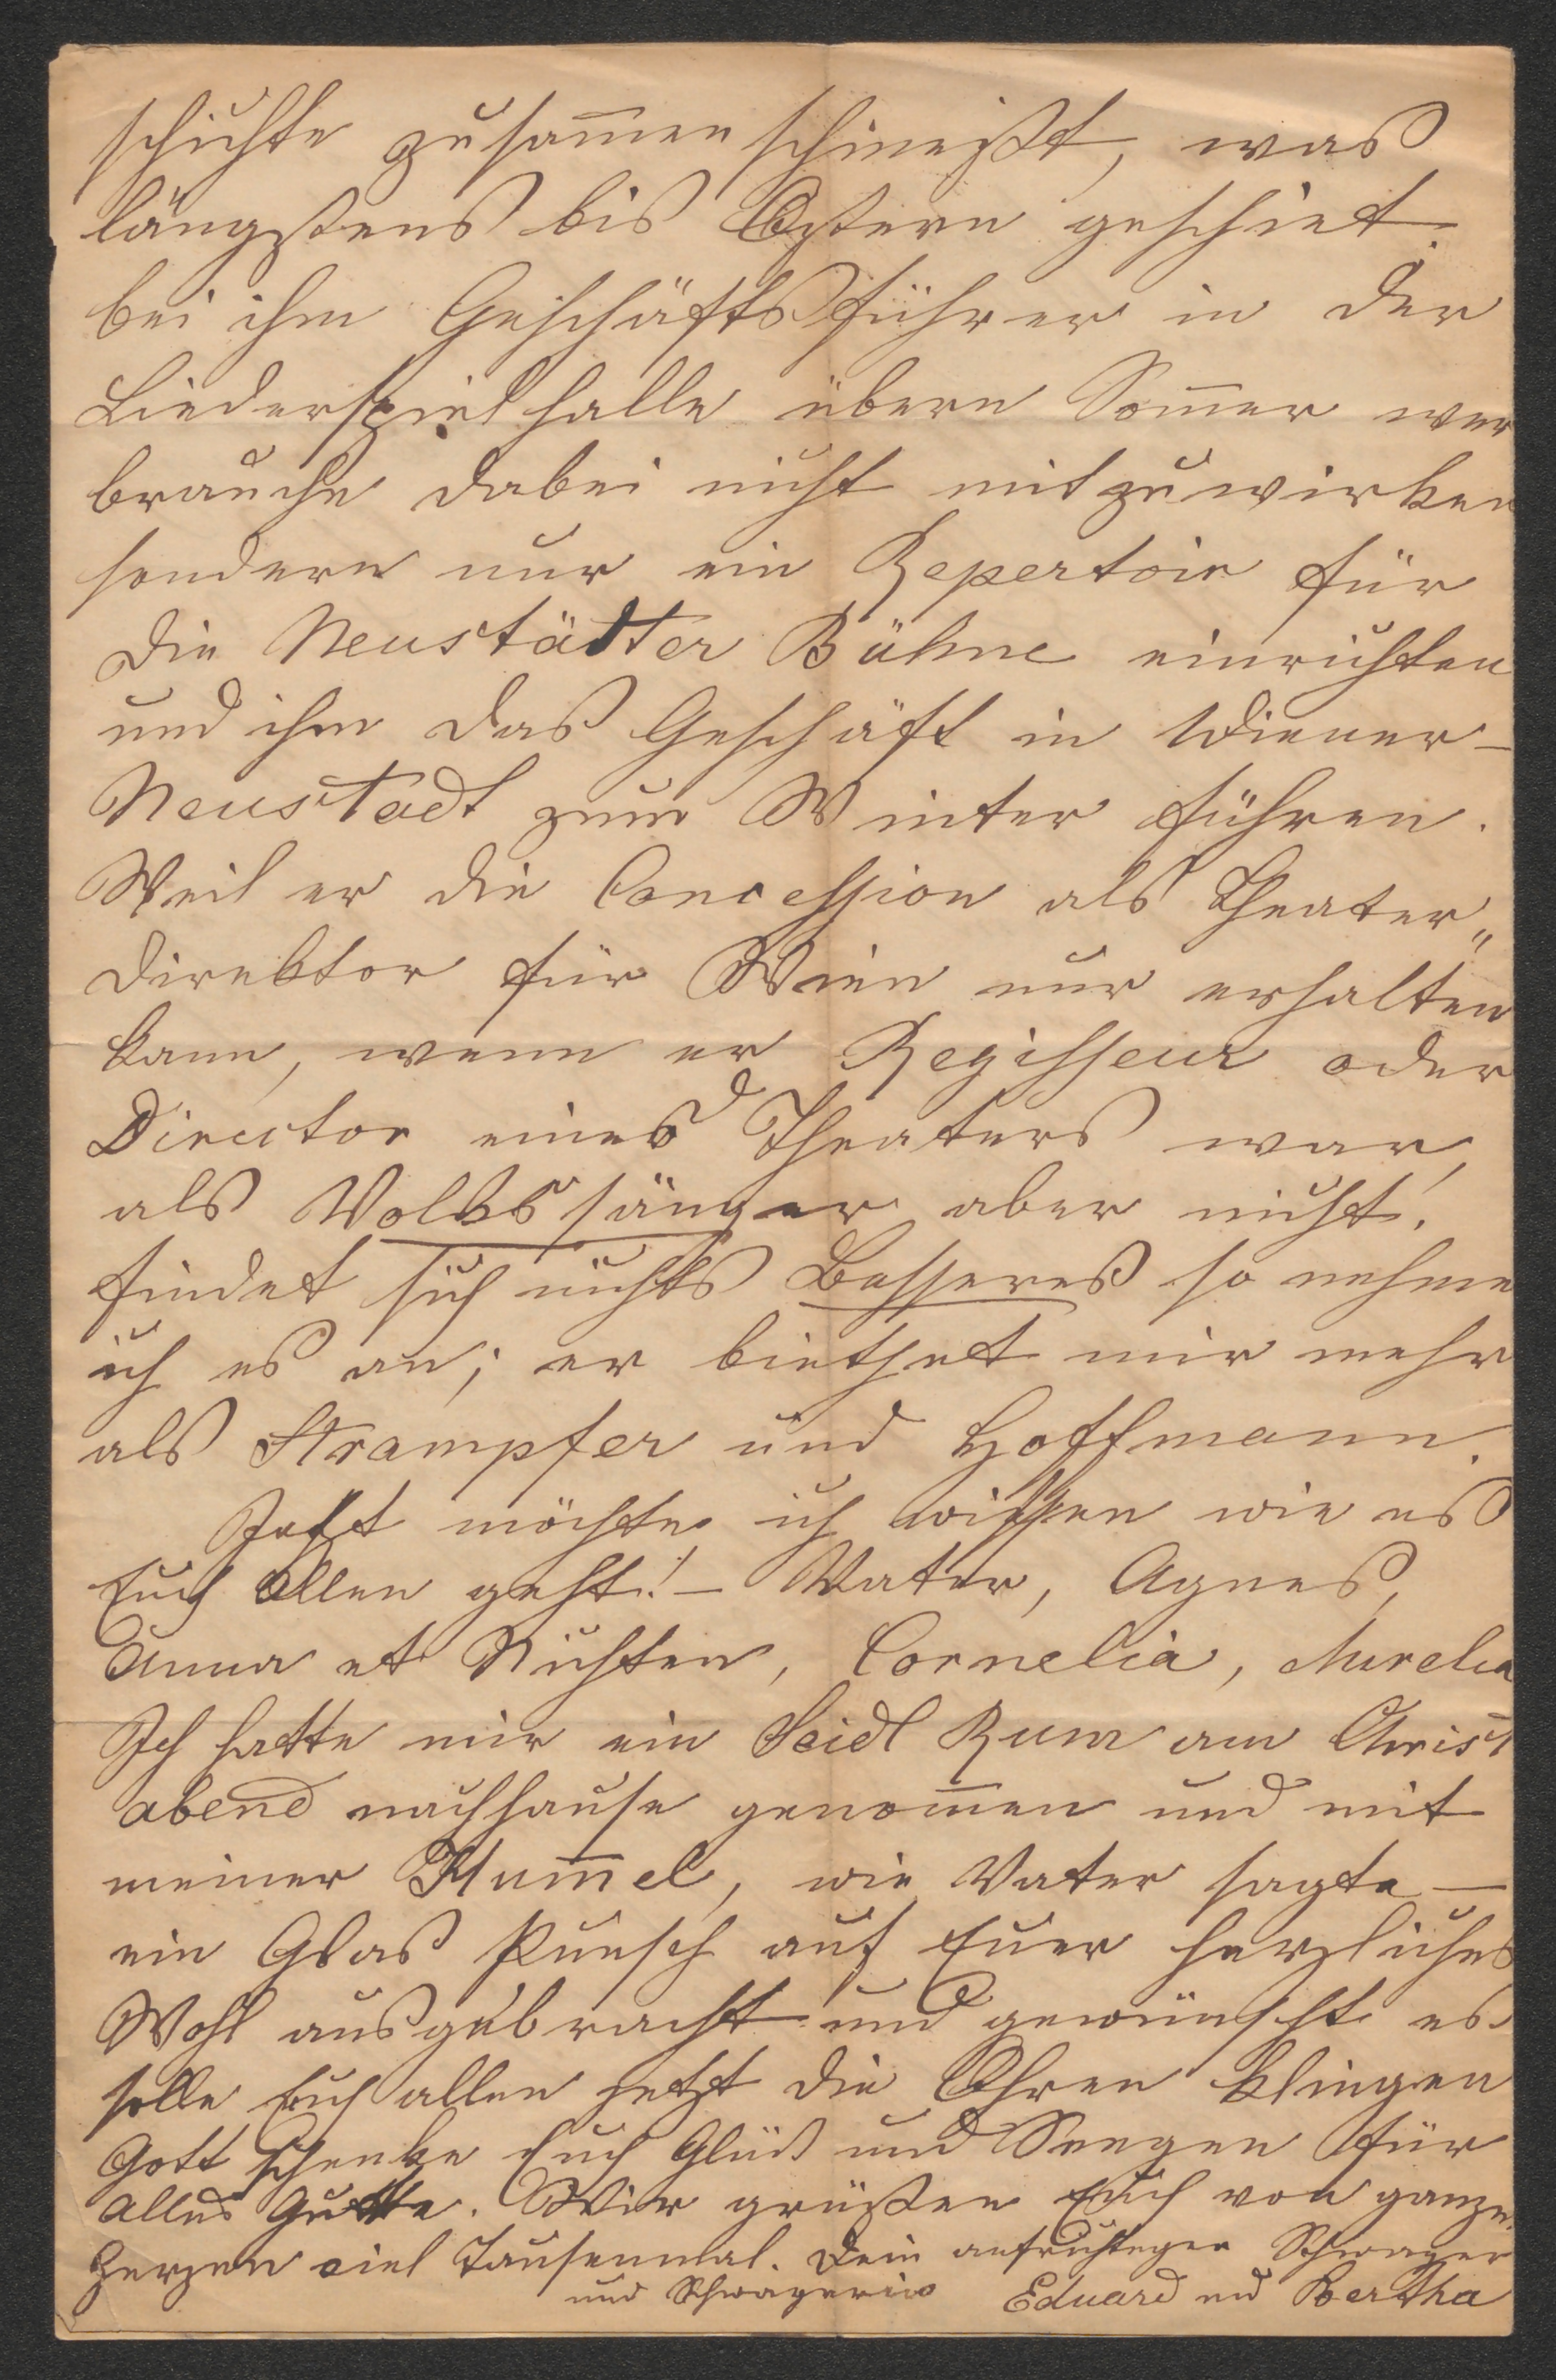 schichte zusam̅en schmeißt, was
längstens bis Ostern geschiet.
bei ihm Geschäftsführer in der
Liederspielhalle übern Som̅er wer
brauche dabei nicht mitzuwirken
sondern nur ein Repertoir für
die Neustädter Bühne einrichten
und ihm das Geschäft in Wiener-
Neustadt zum Winter führen.
Weil er die Concession als Theater„
direktor für Wien nur erhalten
kann, wenn er Regisseur oder
Director eines Theaters war,
als Volkssänger aber nicht!
findet sich nichts Besseres so nehme
ich es an; er biethet mir mehr
als Strampfer und Hoffmann.
Jetzt möchte ich wissen wie es
Euch allen geht! – Vater, Agnes,
Anna et Nichten, Cornelia, Aurelia
Ich hatte mir ein Seidl Rum am Christ
abend nachhause genom̅en und mit
meiner Hum̅el, wie Vater sagte –
ein Glas Punsch auf Euer herzliches
Wohl ausgebracht und gewünscht es
solle Euch allen jetzt die Ohren klingen
Gott schenke Euch Glück und Seegen für
alles Gutte. Wir grüßen Euch von ganze.
Herzen viel Tausenmal. Dein aufrichtiger Schwager
und Schwägerin Eduard und Bertha